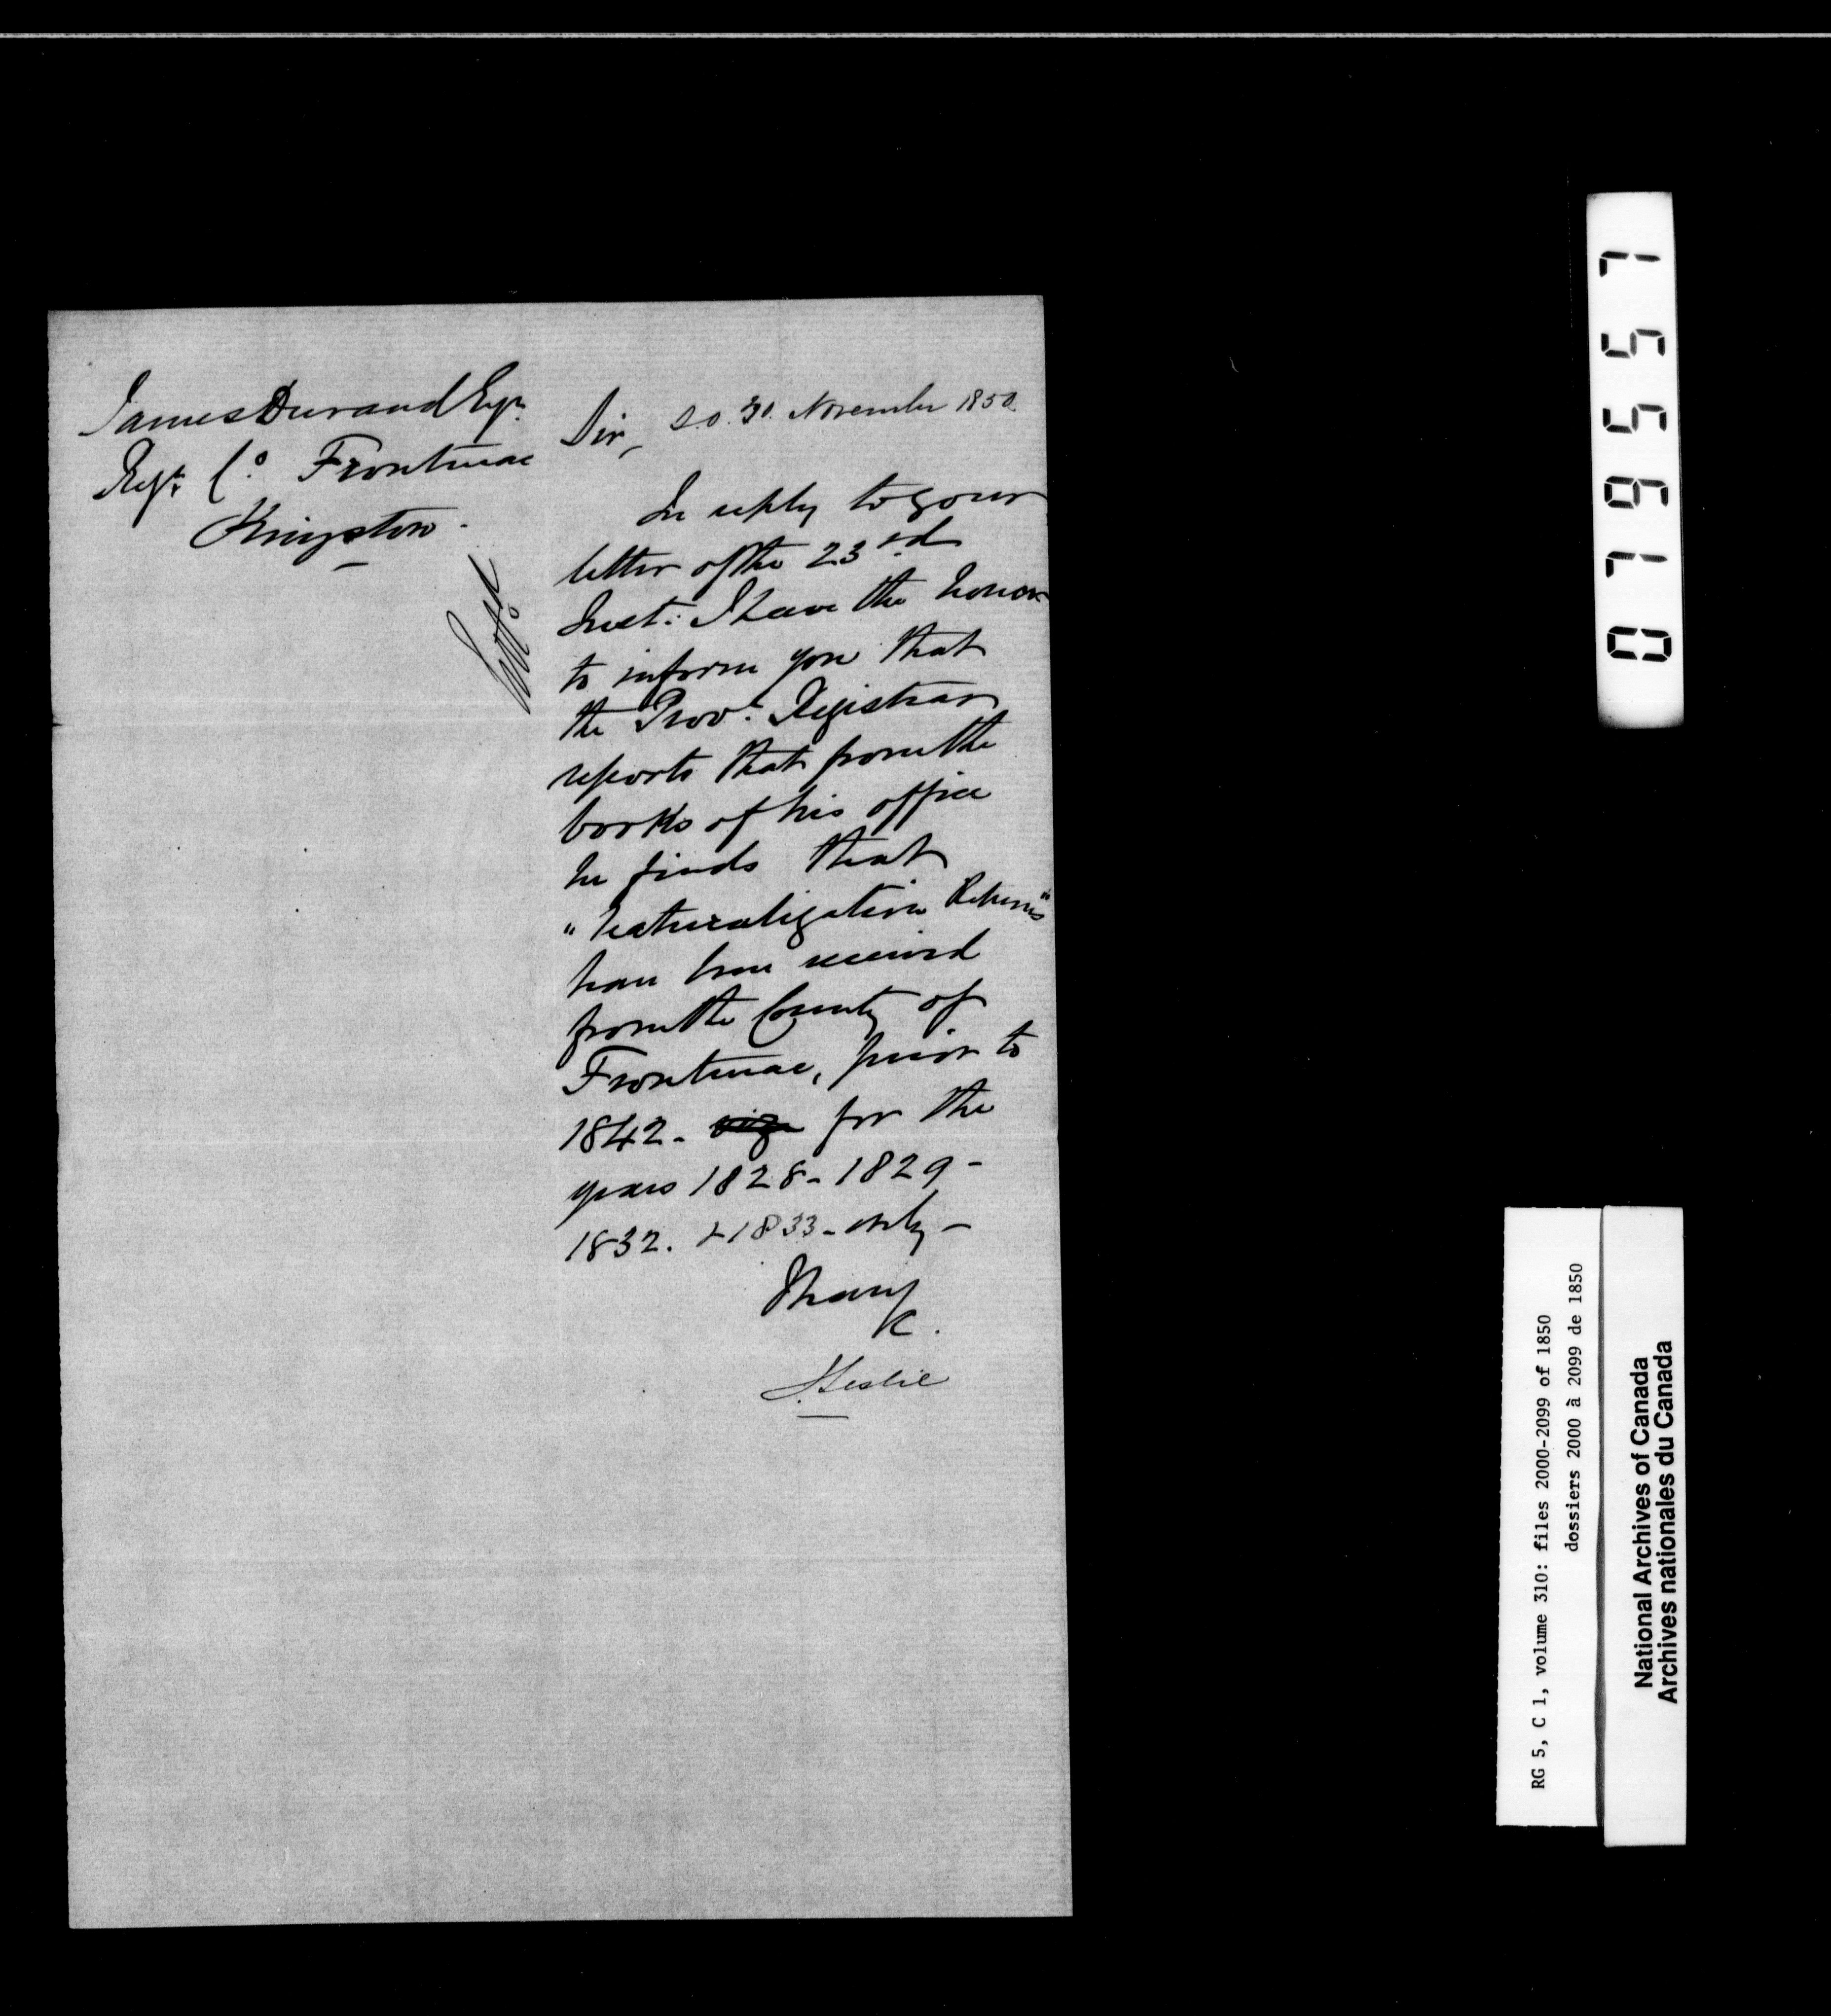 James Durand Esqr.
Regr. Co. Frontenac
Kingston.
S.O. 30. November 1850
Sir,
In reply to your
letter of the 23rd
Inst: I have the honor
to inform you that
the Prov: Registrar
reports that from the
books of his office
he finds that
"Naturalization Returns"
have been received
from the County of
Frontenac, prior to
1842. viz for the
years 1828 - 1829 -
1832. & 1833 - only -
I have
&c.
J. Leslie
0719557
RG 5, C 1, volume 310: files 2000-2099 of 1850
dossiers 2000 à 2099 de 1850
National Archives of Canada
Archives nationales du Canada